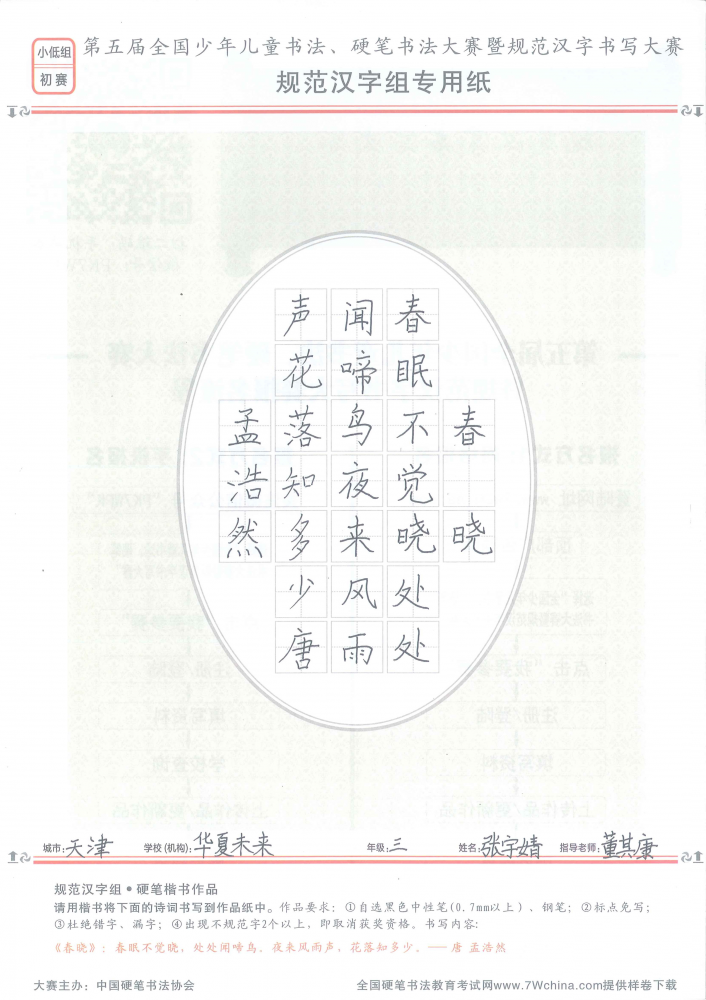 小低组
初赛
第五届全国少年儿童书法、硬笔书法大赛暨规范汉字书写大赛
规范汉字组专用纸
春晓
春眠不觉晓处处
闻啼鸟夜来风雨
声花落知多少唐
孟浩然
城市:天津 学校(机构):华夏未来 年级:三 姓名:张宇婧 指导老师:董其康
规范汉字组●硬笔楷书作品
请用楷书将下面的诗词书写到作品纸中。作品要求:①自选黑色中性笔(0.7mm以上)、钢笔;②标点免写;
③杜绝错字、漏字;④出现不规范字2个以上,即取消获奖资格。书写内容:
《春晓》:春眠不觉晓,处处闻啼鸟。夜来风雨声,花落知多少。——唐 孟浩然
大赛主办:中国硬笔书法协会 全国硬笔书法教育考试网www.7Wchina.com提供样卷下载